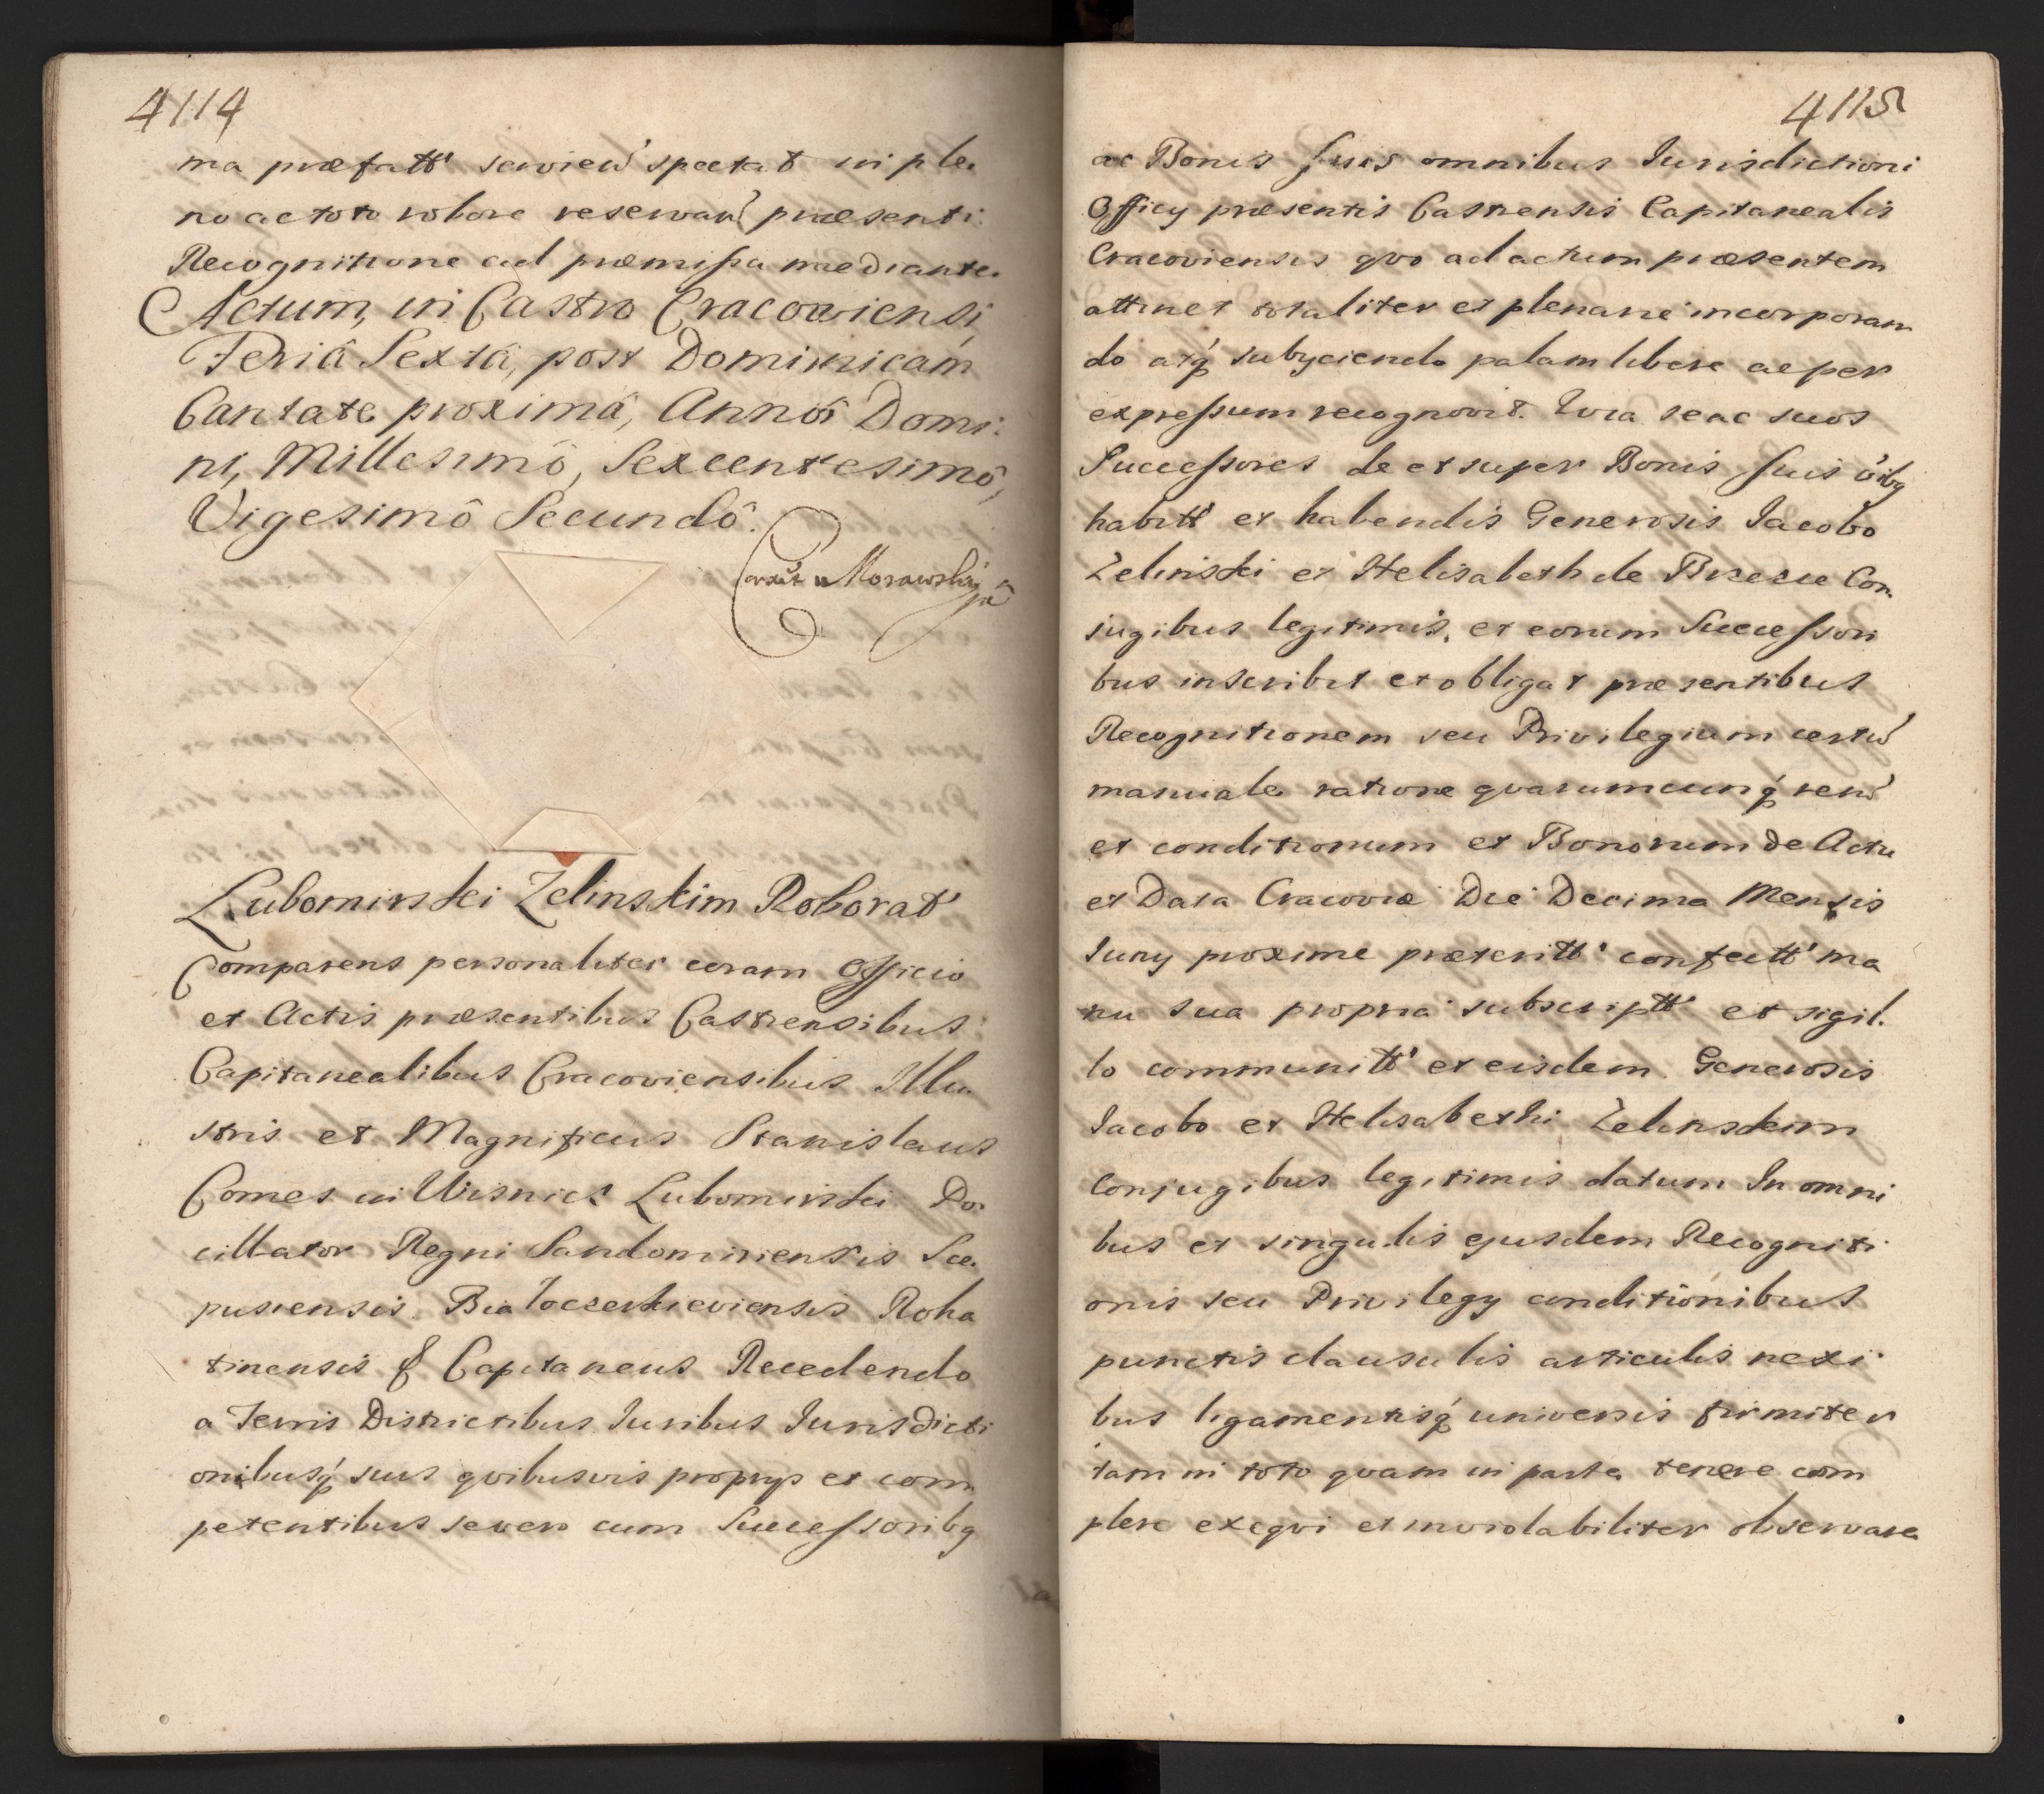 4114
ma præfatt' serview' spectat in ple.
no ac toto robore reservan' præsenti.
Recognitione ad præmissa mediante.
Actum, in Castro Cracoviensi
Feriâ Sextâ, post Dominicam
Cantate proximâ, Annô Domi:
ni, Millesimô, Sexcentesimô,
Vigesimô Secundô.
Corrxit Morawskij
Lubomirski Zelinskim Roborat
Comparens personaliter coram Officio
et Actis præsentibus Castrensibus
Capitanealibus Cracoviensibus Illu
stris et Magnificus Stanislaus
Comes in Wisnicz Lubomirski Po.
cillator Regni Sandomiriensis Sce.
pusiensis Białocerkieviensis Roha
tinensis & Capitaneus Recedendo
a Terris Districtibus Iuribus Iurisdicti
onibusq́ suis qvibusvis proprys et com
petentibus se vero cum Successoribq
4115
ac Bonis suis omnibus Iurisdictioni
Officy præsentis Castrensis Capitanealis
Cracoviensis qvo ad actum præsentem
attinet totaliter et plenarie incorporan
do atq́ subyciendo palam libere ac per
expressum recognovit. Qvia se ac suos
Successores de et super Bonis suis oibq
habitt' et habendis Generosis Iacobo
Zelinski et Helisabeth de Brzezie Con
jugibus legitimis, et eorum Successori
bus inscribit et obligat præsentibus
Recognitionem seu Privilegium certu'
manuale ratione qvarumcunq́ reru'
et conditionum et Bonorum de Actu
et Data Cracoviæ Die Decima Mensis
Iuny proxime præteritt' confectt' ma
nu sua propria subscriptt' et sigil.
lo communitt' et eisdem Generosis
Iacobo et Helisabethi Zelinskim
Conjugibus legitimis datum In omni
bus et singulis ejusdem Recogniti
onis seu Privilegy conditionibus
punctis clausulis articulis nexi
bus ligamentisq́ universis firmiter
tam in toto qvam in parte tenere com
plere exeqvi et inviolabiliter observare